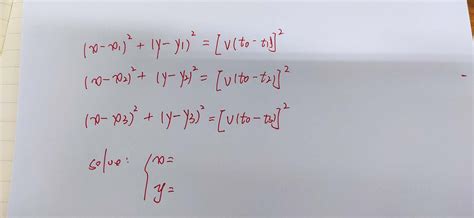 (x-x₁)² + (y-y₁)² = [v(t₀-t₁)]²
(x-x₂)² + (y-y₂)² = [v(t₀-t₂)]²
(x-x₃)² + (y-y₃)² = [v(t₀-t₃)]²
solve: { x=
y=